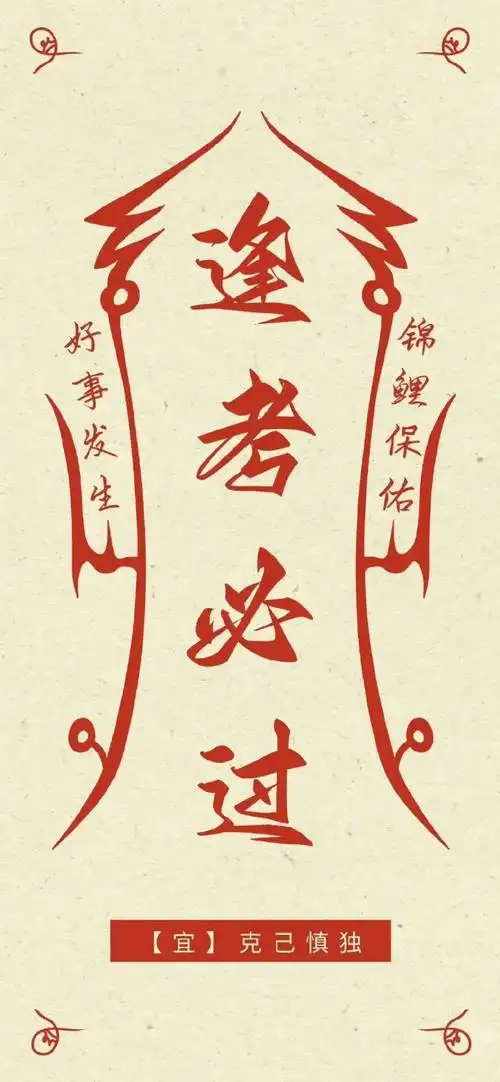 逢考必过
锦鲤保佑
好事发生
【宜】克己慎独